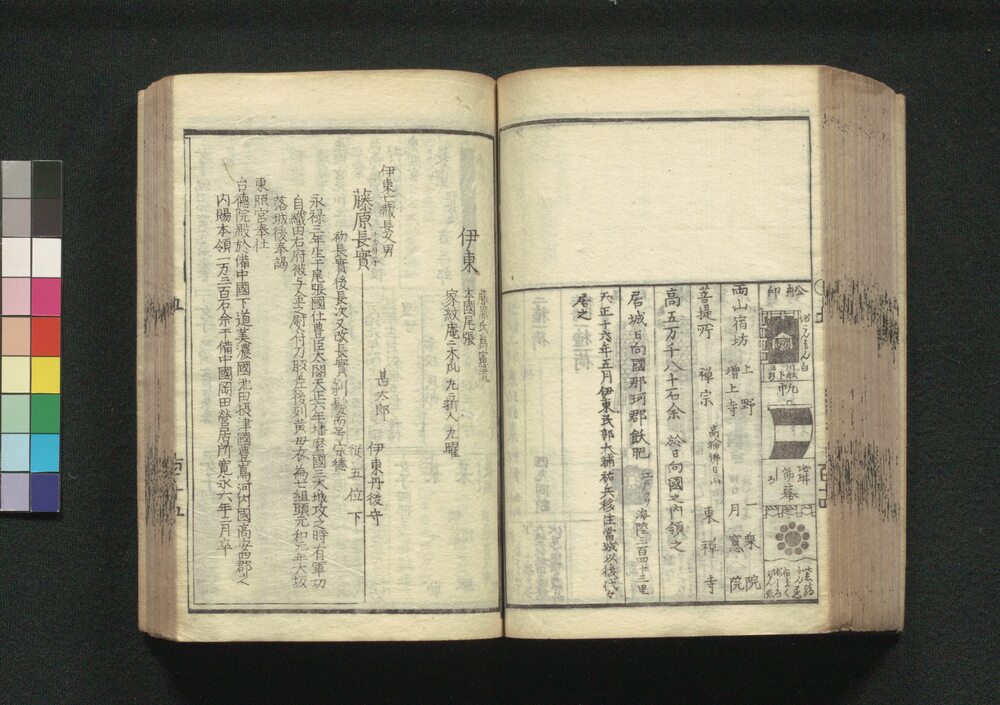 舩印
地
白
帆
幕
両山宿坊
上野
一乗院
増上寺
月窓院
菩提所
禅宗
高輪佛日山
東禅寺
高五万千八十石余
於日向國之内領之
居城日向國那珂郡飫肥
江戸ヨリ海陸三百四十三里
天正十六年五月伊東民部大輔祐兵移住當城以後代々
居之
伊東
藤原氏為憲流
本國尾張
家紋庵ニ木瓜 九ツ折入九曜
伊東七藏長久男
藤原長實
甚太郎
伊東丹後守
従五位下
初長實後長次又改長實剃髪而号宗徳
永禄三年生于尾張國仕豊臣太閤天正六年播磨國三木城攻之時有軍功
自織田右府被
落城後奉謁
東照宮奉仕
台徳院殿於備中國下道美濃國池田摂津國豊嶌河内國高安四郡之
内賜本領一万三百石余于備中國岡田營居所寛永六年二月卒